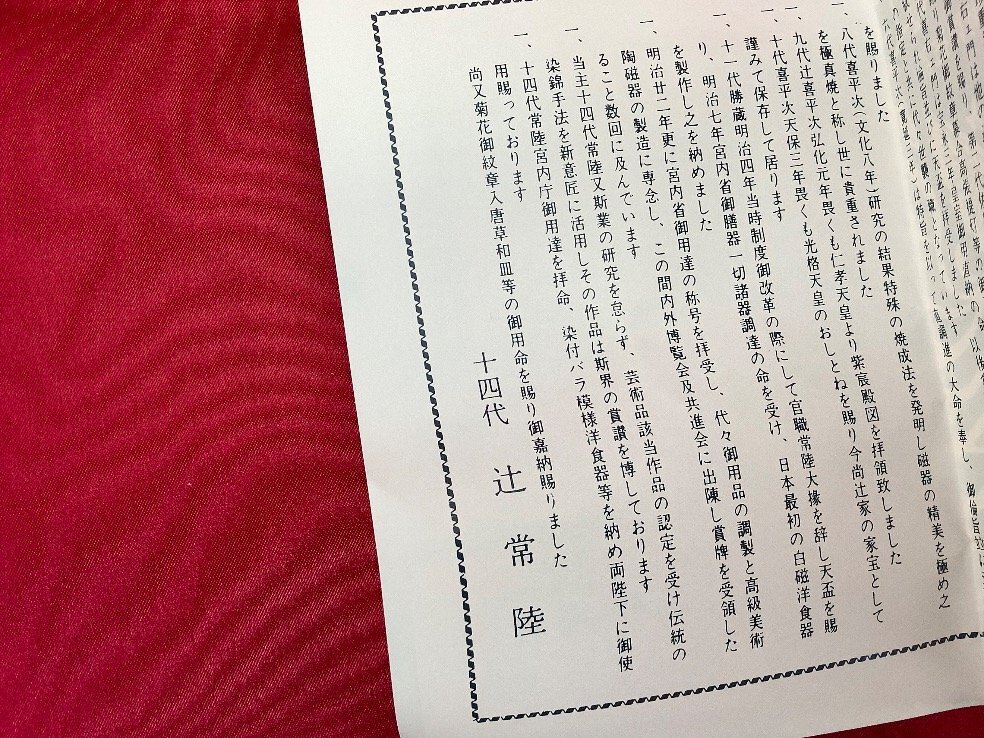 を賜りました
一、八代喜平次(文化八年)研究の結果特殊の焼成法を発明し磁器の精美を極め之
を極真焼と称し世に貴重されました
一、九代辻喜平次弘化元年畏くも仁孝天皇より紫宸殿図を拝領致しました
一、十代喜平次天保三年畏くも光格天皇のおしとねを賜り今尚辻家の家宝として
謹みて保存して居ります
一、十一代勝蔵明治四年当時制度御改革の際にして官職常陸大掾を辞し天盃を賜
り、明治七年宮内省御膳器一切諸器調達の命を受け、日本最初の白磁洋食器
を製作し之を納めました
一、明治廿二年更に宮内省御用達の称号を拝受し、代々御用品の調製と高級美術
陶磁器の製造に専念し、この間内外博覧会及共進会に出陳し賞牌を受領した
ること数回に及んでいます
一、当主十四代常陸又斯業の研究を怠らず、芸術品該当作品の認定を受け伝統の
染錦手法を新意匠に活用しその作品は斯界の賞讃を博しております
一、十四代常陸宮内庁御用達を拝命、染付バラ模様洋食器等を納め両陛下に御使
用賜っております
尚又菊花御紋章入唐草和皿等の御用命を賜り御嘉納賜りました
十四代 辻常陸